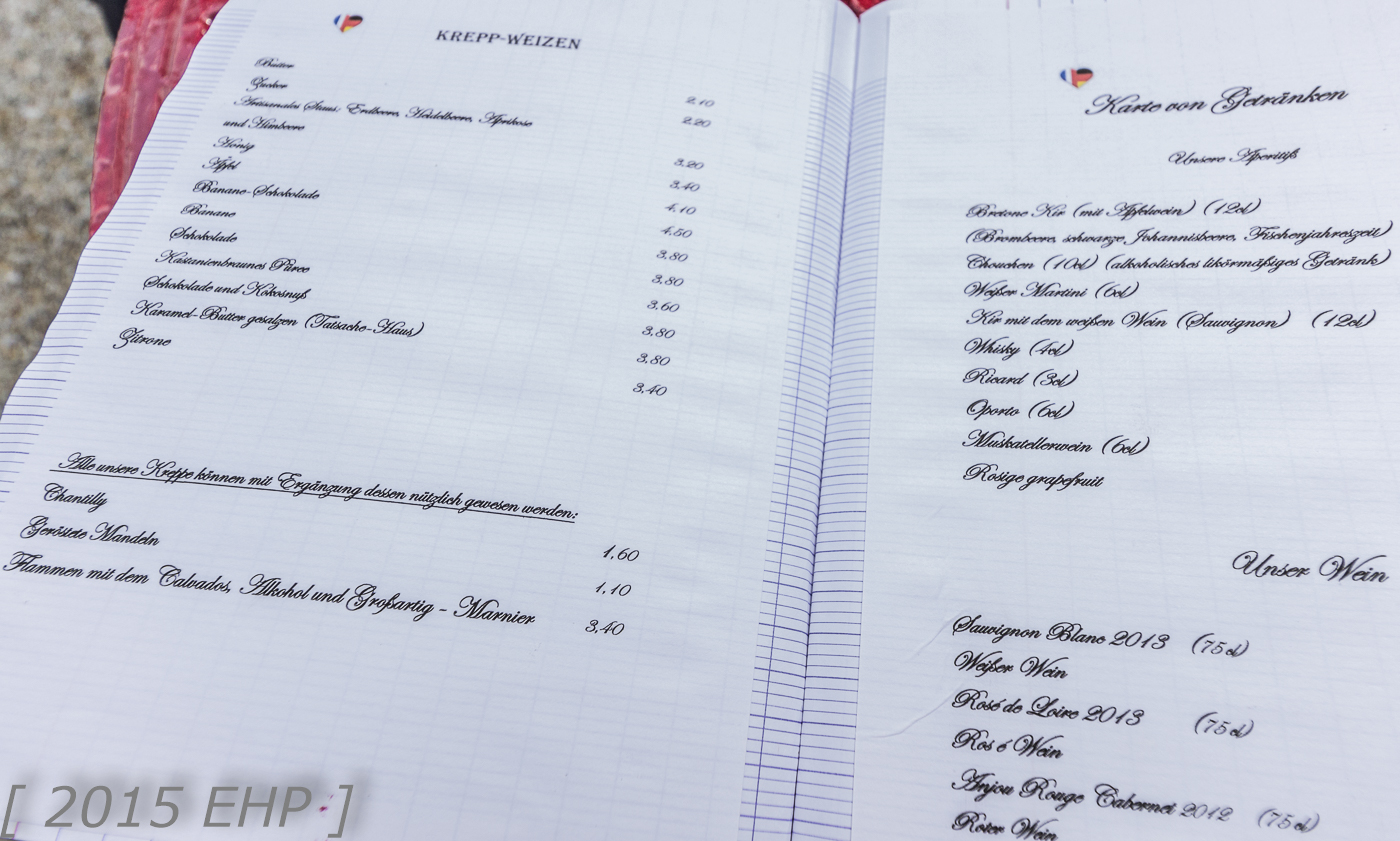 KREPP-WEIZEN
Butter
Zucker 2.10
Artisanales Staus: Erdbeere, Heidelbeere, Aprikose 2.20
und Himbeere
Honig 3.20
Äpfel 3.40
Banane-Schokolade 4.10
Banane 4.50
Schokolade 3.80
Kastanienbraunes Püree 3.80
Schokolade und Kokosnuß 3.60
Karamel-Butter gesalzen (Tatsache-Haus) 3.80
Zitrone 3.80
3.40
Alle unsere Kreppe können mit Ergänzung dessen nützlich gewesen werden:
Chantilly 1,60
Geröstete Mandeln 1,10
Flammen mit dem Calvados, Alkohol und Großartig - Marnier 3,40
Karte von Getränken
Unsere Aperitifs
Bretone Kir (mit Apfelwein) (12cl)
(Brombeere, schwarze Johannisbeere, Fischenjahreszeit)
Chouchen (10cl) (alkoholisches likörmäßiges Getränk)
Weißer Martini (6cl)
Kir mit dem weißen Wein (Sauvignon) (12cl)
Whisky (4cl)
Ricard (3cl)
Oporto (6cl)
Muskatellerwein (6cl)
Rosige grapefruit
Unser Wein
Sauvignon Blanc 2013 (75 cl)
Weißer Wein
Rosé de Loire 2013 (75 cl)
Ros é Wein
Anjou Rouge Cabernet 2012 (75 cl)
Roter Wein
[ 2015 EHP ]